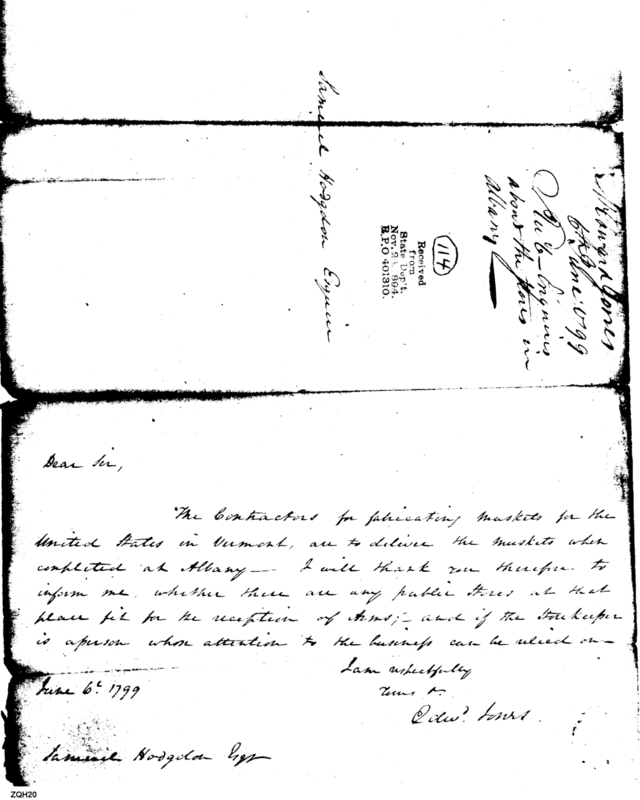 Samuel Hodgdon Esquire
114
Received
from
State Dep't.
Nov. 2 1894.
R.P.O 401310.
Edward Jones
6th June 1799
about the Stores in
Albany
Dear Sir,
The Contractors for fabricating muskets for the
United States in Vermont, are to deliver the muskets when
completed at Albany— I will thank you therefore to
inform me, whether there are any public Stores at that
place fit for the reception of Arms;— and if the Storekeeper
is a person whose attention to the business can be relied on—
I am respectfully
Yours &c.
Edwd. Jones.
June 6th 1799
Samuel Hodgdon Esqr
ZQH20